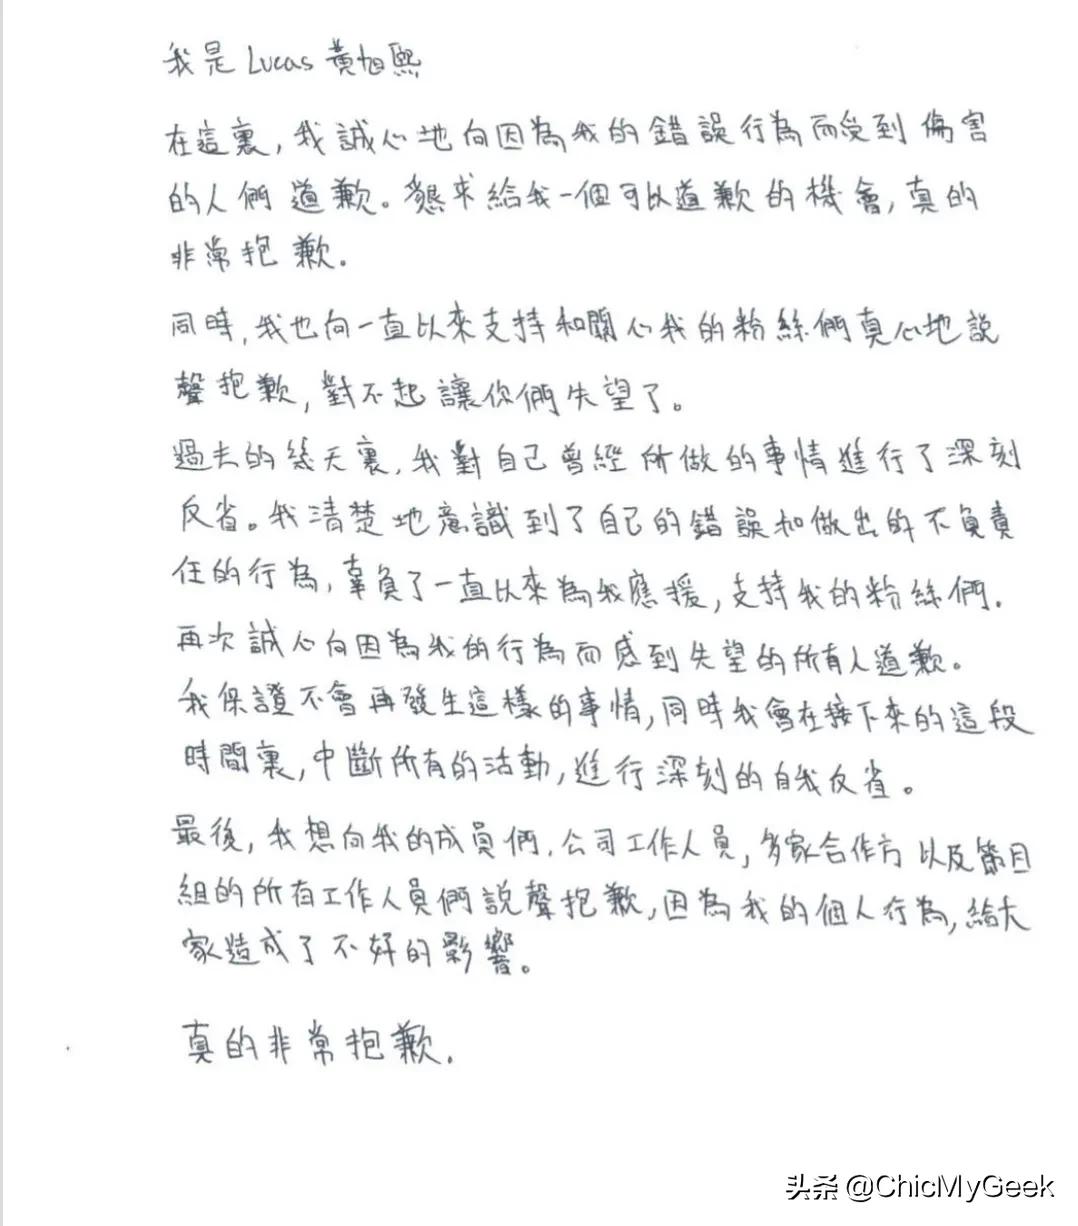 我是 Lucas 黃旭熙
在這裏,我誠心地向因為我的錯誤行為而受到傷害
的人們道歉。懇求給我一個可以道歉的機會,真的
非常抱歉.
同時,我也向一直以來支持和關心我的粉絲們真心地說
聲抱歉,對不起讓你們失望了。
過去的幾天裏,我對自己曾經所做的事情進行了深刻
反省。我清楚地意識到了自己的錯誤和做出的不負責
任的行為,辜負了一直以來為我應援,支持我的粉絲們.
再次誠心向因為我的行為而感到失望的所有人道歉。
我保證不會再發生這樣的事情,同時我會在接下來的這段
時間裏,中斷所有的活動,進行深刻的自我反省。
最後,我想向我的成員們.公司工作人員,多家合作方以及節目
組的所有工作人員們說聲抱歉,因為我的個人行為,給大
家造成了不好的影響。
真的非常抱歉.
头条 @ChicMyGeek